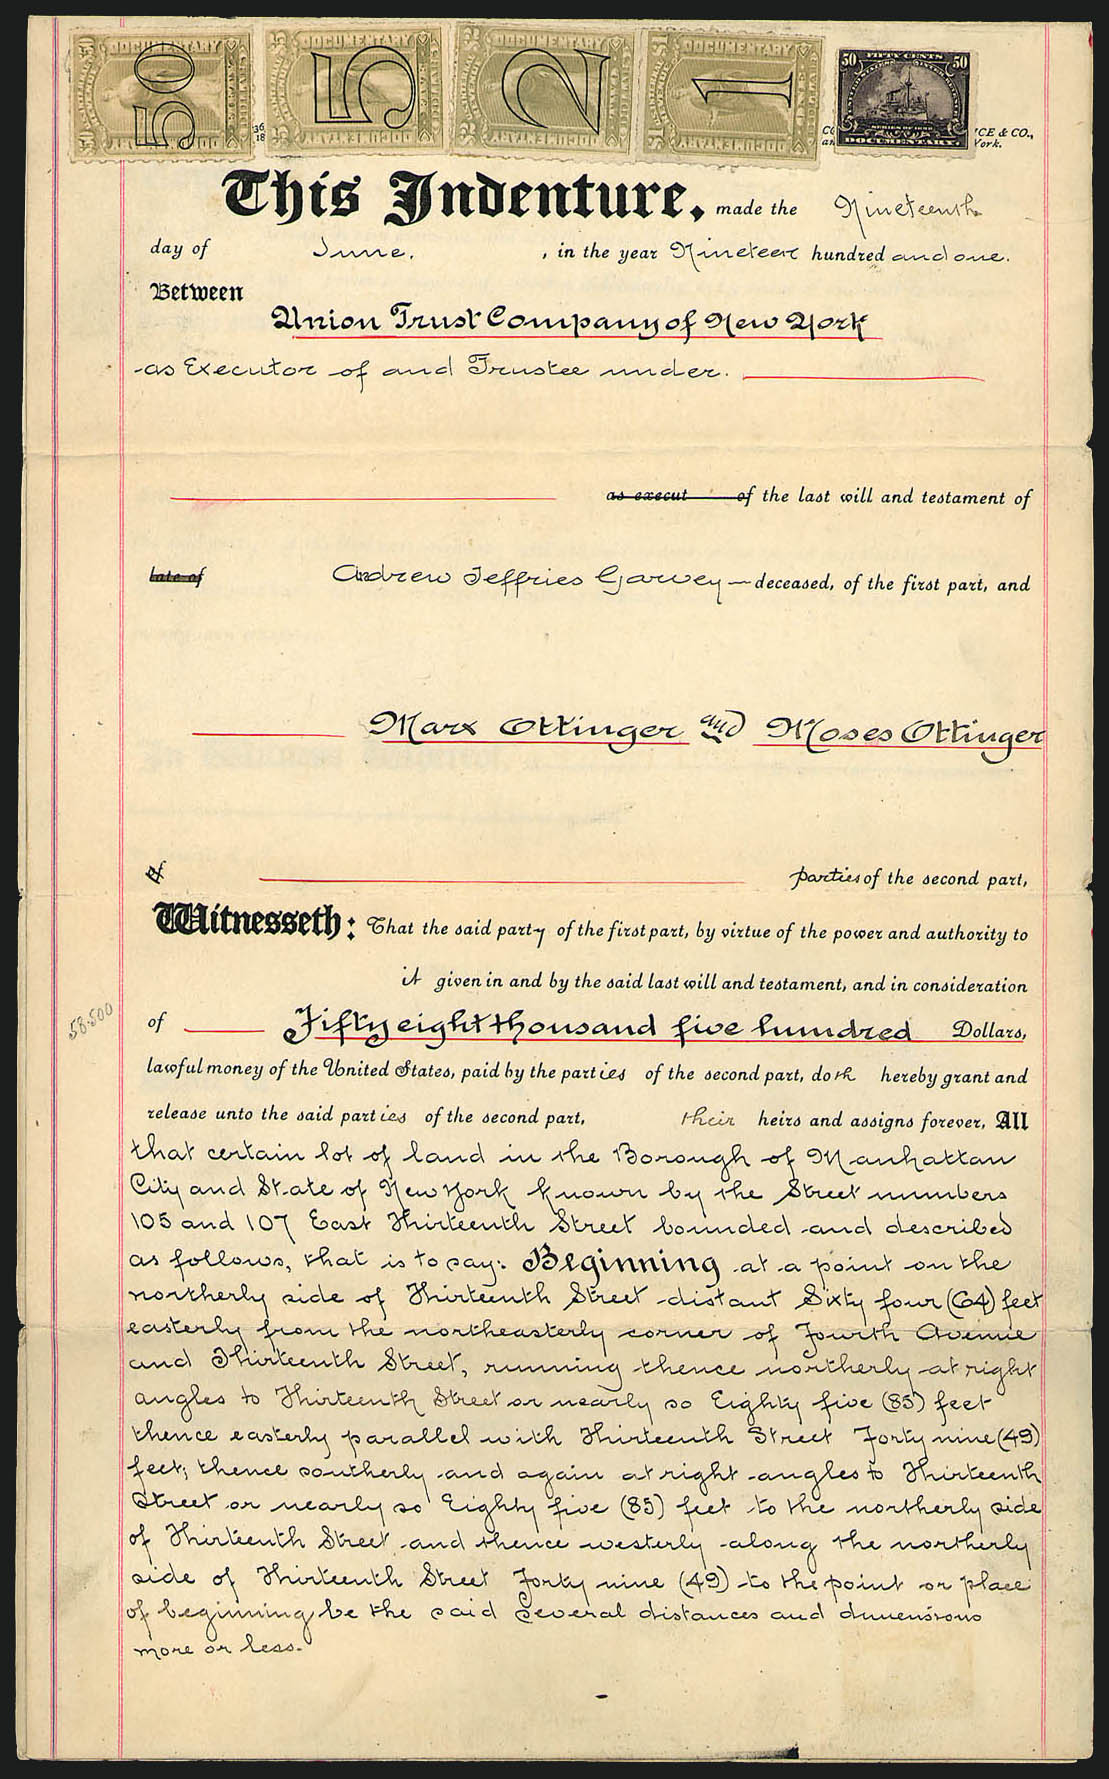 DOCUMENTARY DOCUMENTARY DOCUMENTARY DOCUMENTARY FIFTY CENTS
$50 50 $5 5 $2 2 $1 1 50 50
SERIES OF 1898
DOCUMENTARY
ICE & CO.,
York.
This Indenture, made the Nineteenth
day of June. , in the year Nineteen hundred and one.
Between
Union Trust Company of New York
as Executor of and Trustee under.
as execut of the last will and testament of
late of Andrew Jeffries Garvey — deceased, of the first part, and
Marx Ottinger and Moses Ottinger
of parties of the second part,
Witnesseth: That the said party of the first part, by virtue of the power and authority to
it given in and by the said last will and testament, and in consideration
58.500
of Fifty eight thousand five hundred Dollars,
lawful money of the United States, paid by the parties of the second part, doth hereby grant and
release unto the said parties of the second part, their heirs and assigns forever, All
that certain lot of land in the Borough of Manhattan
City and State of New York known by the Street numbers
105 and 107 East Thirteenth Street bounded and described
as follows, that is to say: Beginning at a point on the
northerly side of Thirteenth Street distant Sixty four (64) feet
easterly from the northeasterly corner of Fourth Avenue
and Thirteenth Street, running thence northerly at right
angles to Thirteenth Street or nearly so Eighty five (85) feet
thence easterly parallel with Thirteenth Street Forty nine (49)
feet; thence southerly and again at right angles to Thirteenth
Street or nearly so Eighty five (85) feet to the northerly side
of Thirteenth Street and thence westerly along the northerly
side of Thirteenth Street Forty nine (49) to the point or place
of beginning be the said several distances and dimensions
more or less.